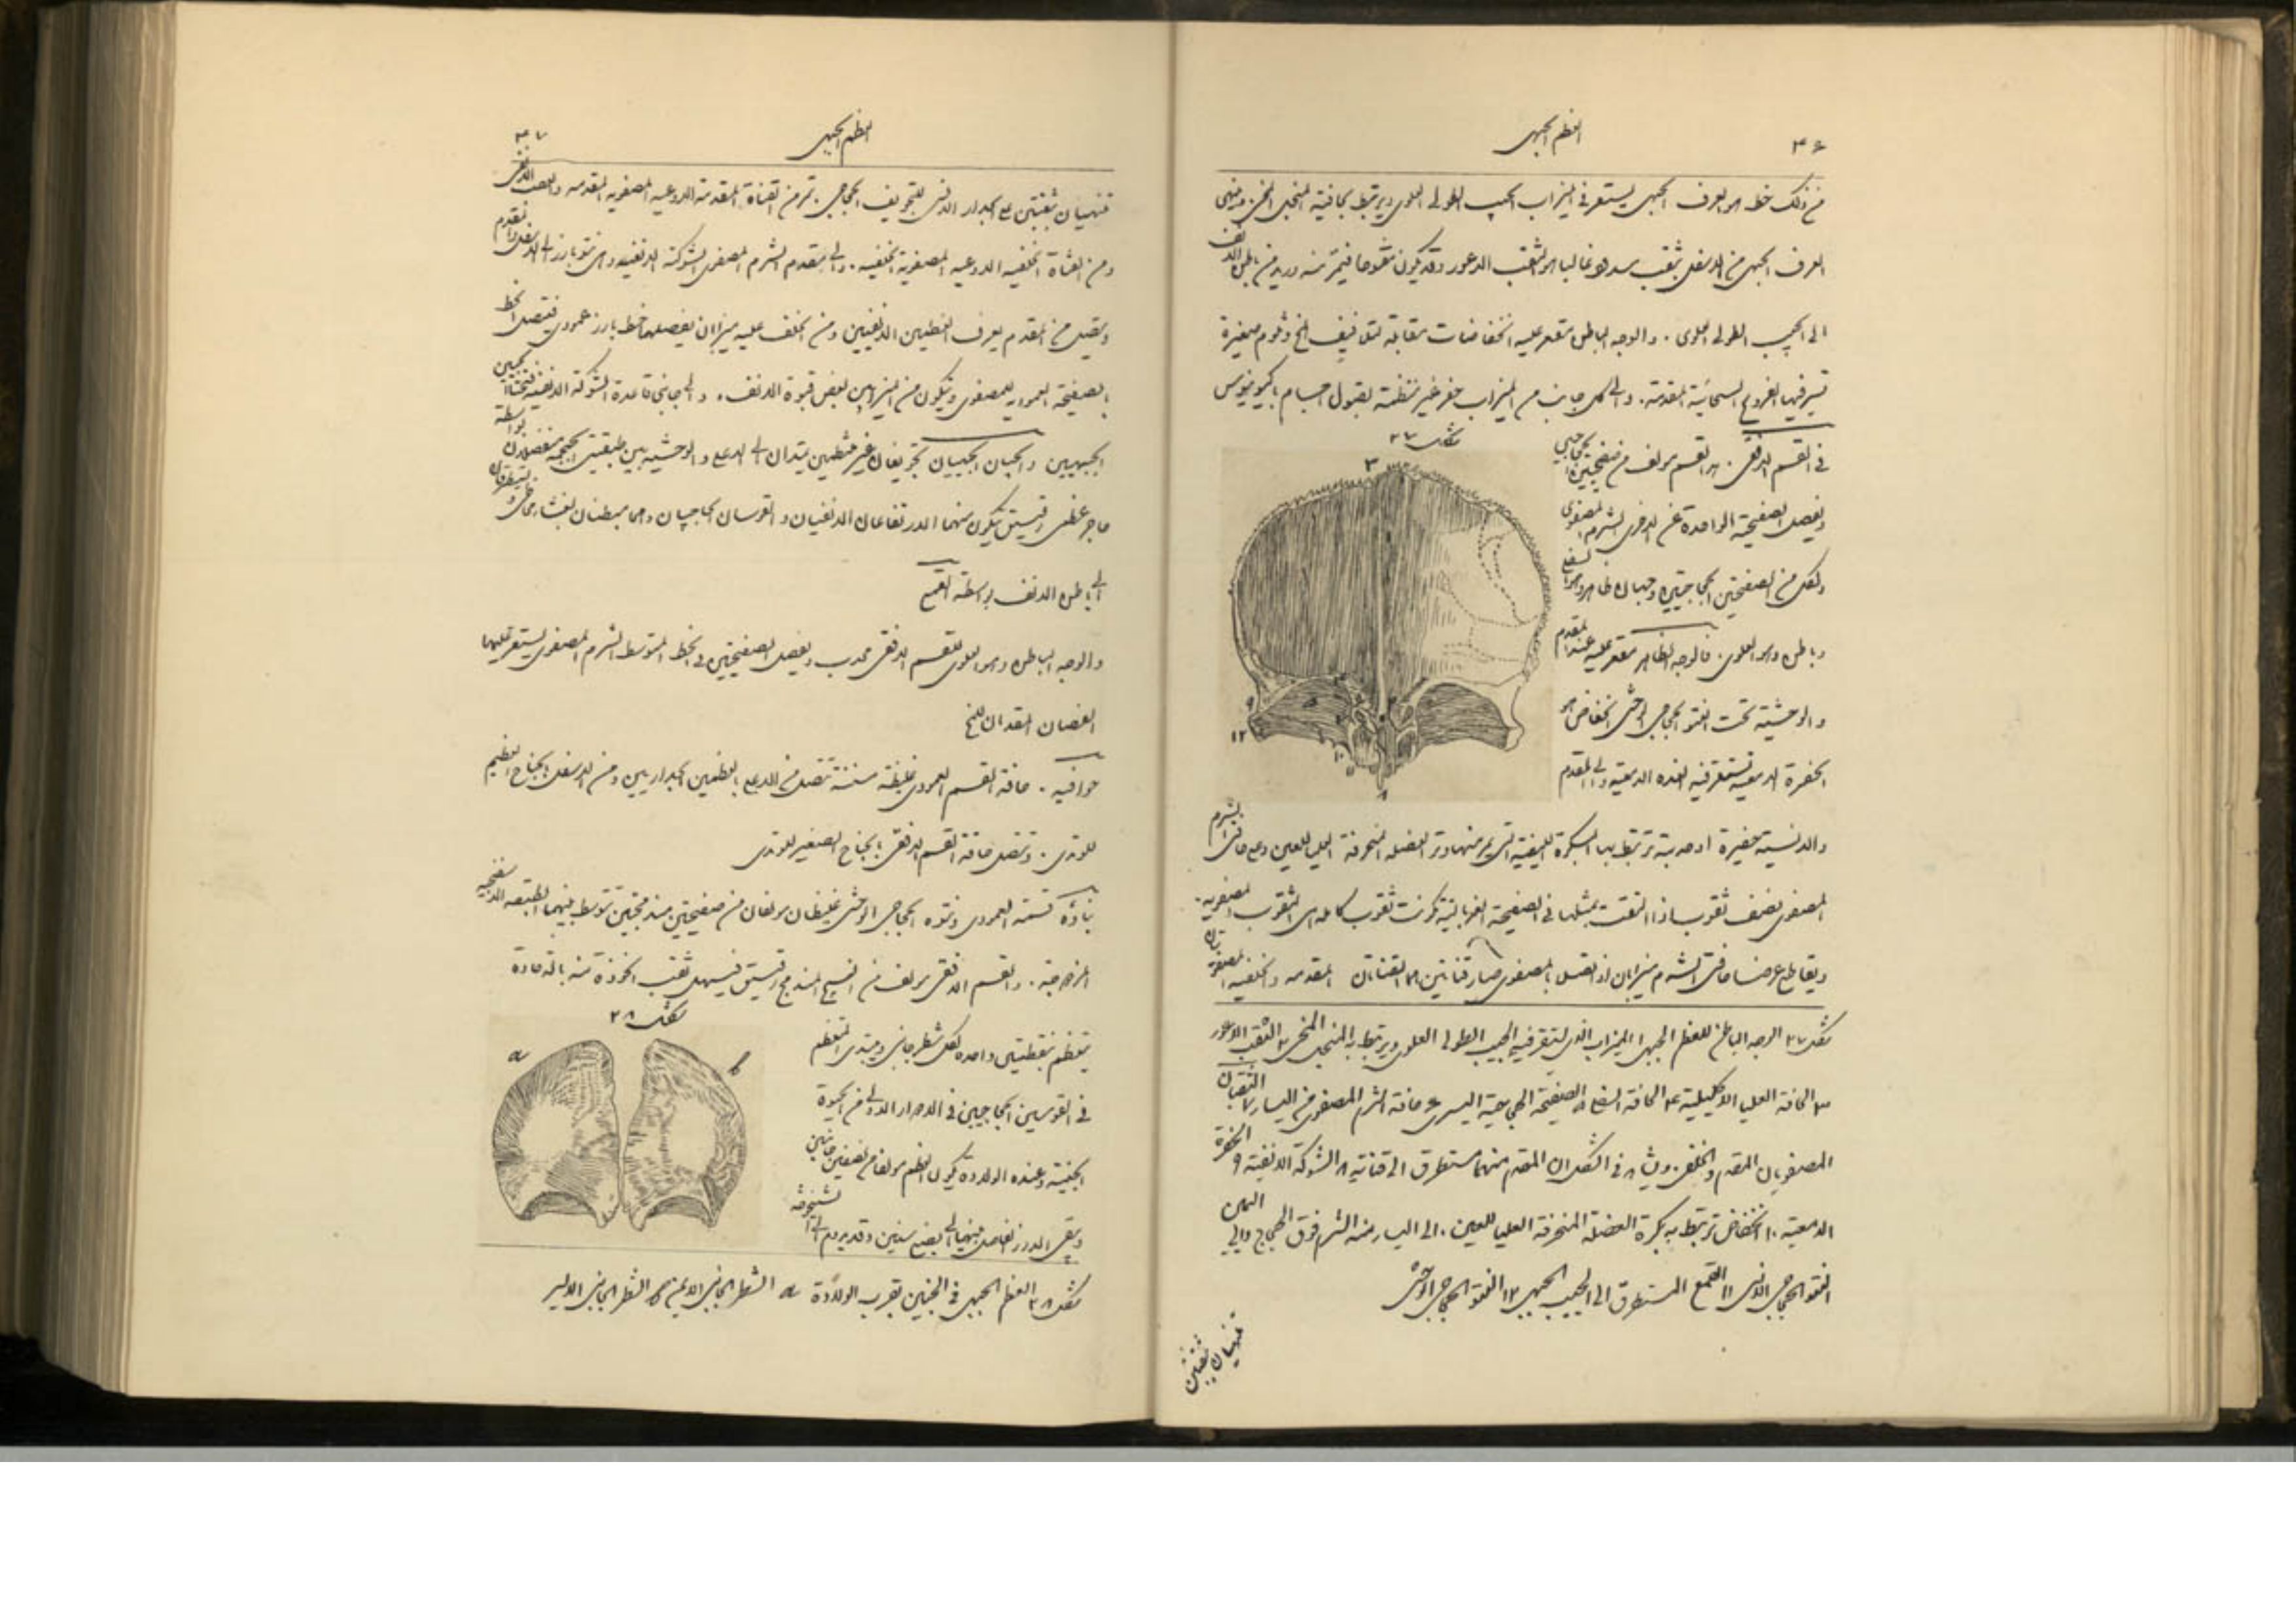 ٤٦
العظم الجبهى
من ذلك خط هو العرف الجبهى يستقر فى الميزاب الجيب الطولى العلوى ويرتبط بحافتيه المنجل المخى. وينتهى
العرف الجبهى من الاسفل بثقب يسد هو غالبا هو الثقب الاعور وقد يكون مفتوحا فيمر منه وريد من باطن الانف
الى الجيب الطولى العلوى. والوجه الباطن مقعر عليه انخفاضات مقابلة لتلافيف المخ وثلوم صغيرة
تسير فيها الفروع السحائية المقدمة. والى كل جانب من الميزاب حفر غير منتظمة لقبول اجسام باكيونيوس
شكل ٢٧
فى القسم الافقى. هذا القسم مولف من صفيحتين حجاجيتين
ويفصل الصفيحة الواحدة عن الاخرى الشرم المصفوى
ولكل من الصفيحتين الحجاجيتين وجهان ظاهر وهو السفلى
وباطن وهو العلوى. فالوجه الظاهر مقعر عليه عند المقدم
والوحشية تحت النتو الحجاجى الوحشى انخفاض هو
الحفرة الدمعية تستقر فيه الغدة الدمعية والى المقدم
والانسية حفيرة او حدبة ترتبط بها البكرة الليفية التى يمر منها وتر العضلة المنحرفة العليا للعين وعلى حافتى الشرم
المصفوى نصف ثقوب اذا التقت بمثلها فى الصفيحة الغربالية تكونت ثقوب كاملة هى الثقوب المصفوية.
ويقاطع عرضا حافتى الشرم ميزابان اذا اتصل بالمصفوى صار قناتين هما القناتان المصفويتان المقدمه والخلفيه
شكل ٢٧ الوجه الباطن للعظم الجبهى ١ الميزاب الذى يستقر فيه الجيب الطولى العلوى ويرتبط به المنجل المخى ٢ الثقب الاعور
٣ الحافة العليا الاكليلية ٤ الحافة السفلى ٥ الصفيحة الحجاجية اليسرى ٦ حافة الشرم المصفوى من اليسار ٧ الثقبان
المصفويان المقدم والخلفى ويشاهد فى الشكل ان المقدم منهما مستطرق الى قناتيه ٨ الشوكة الانفية ٩ الحفرة
الدمعية ١٠ انخفاض ترتبط به بكرة العضلة المنحرفة العليا للعين. الى اليسار منه الشرم فوق الحجاج والى اليمين
النتو الحجاجى الانسى ١١ القمع المستطرق الى الجيب الجبهى ١٢ النتو الحجاجى الوحشى
تنتهيان بثقبين
العظم الجبهى
٤٧
تنتهيان بثقبين على الجدار الانسى للتجويف الحجاجى. تمر من القناة المقدمة الاوعيه المصفويه المقدمه والعصب الانفى
ومن القناة الخلفيه الاوعيه المصفوية الخلفيه. والى مقدم الشرم المصفوى الشوكة الانفيه وهى نتو بارز الى الاسفل والمقدم
ويتصل من المقدم بعرف العظمين الانفيين ومن الخلف عليه ميزابان يفصلهما خط بارز عمودى فيتصل الخط
بالصفيحة العمودية للمصفوى ويتكون من الميزابين بعض قبوة الانف. والى جانبى قاعدة الشوكة الانفيه فتحتا الجيبين
الجبهيين والجيبان الجبهيان تجويفان غير منتظمين يمتدان الى الاعلى والوحشية بين طبقتى الجمجمة منفصلان بواسطة
حاجز عظمى رقيق يتكون منهما الارتفاعان الانفيان والقوسان الحاجبيان وهما مبطنان بغشاء مخاطى ويستطرقان
الى باطن الانف بواسطة القمع
والوجه الباطن وهو العلوى للقسم الافقى محدب ويفصل الصفيحتين فى الخط المتوسط الشرم المصفوى يستقر عليهما
الفصان المقدمان للمخ
حوافيه. حافة القسم العمودى غليظة مسننة تتصل من الاعلى بالعظمين الجداريين ومن الاسفل بالجناح العظيم
للوتدى. وتتصل حافة القسم الافقى بالجناح الصغير للوتدى
بناؤه قسمه العمودى ونتوه الحجاجى الوحشى غليظان مولفان من صفيحتين مندمجتين تتوسط بينهما الطبقه الاسفنجيه
المزدوجة. والقسم الافقى مولف من النسيج المندمج رقيق فيسهل ثقب الخوذة منه بالة حادة
شكل ٢٨
a
b
يتعظم بنقطتين واحدة لكل شطر جانبى ويبتدى التعظم
فى القوسين الحجاجيين فى الادوار الاولى من الحيوة
الجنينية وعند الولادة يكون العظم مولفا من نصفين جانبيين
ويبقى الدرز الفاصل بينهما الى بضع سنين وقد يدوم الى الشيخوخة
شكل ٢٨ العظم الجبهى فى الجنين بقرب الولادة a الشطر الجانبى الايمن b الشطر الجانبى الايسر